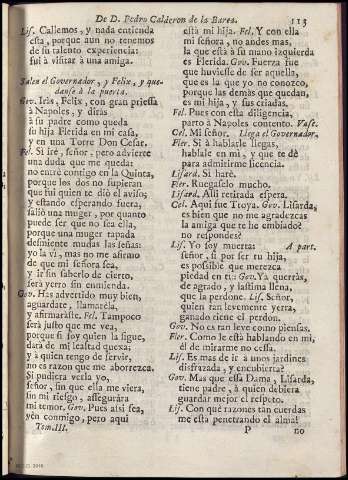 De D. Pedro Calderon de la Barca.
113
Lis. Callemos, y nada entienda
esta, porque aun no tenemos
de su talento experiencia:
fui à visitar à una amiga.
Salen el Governador, y Felix, y que-
danse à la puerta.
Gov. Iràs, Felix, con gran priessa
à Napoles, y diràs
à su padre como queda
su hija Flerida en mi casa,
y en una Torre Don Cesar.
Fel. Si irè, señor, pero advierte
una duda que me queda:
no entrè contigo en la Quinta,
porque los dos no supieran
que fui quien te diò el aviso;
y estando esperando fuera,
saliò una muger, por quanto
puede ser que no sea ella,
porque una muger tapada
desmiente mudas las señas:
yo la vi, mas no me afirmo
de que mi señora sea,
y ir sin saberlo de cierto,
serà yerro sin enmienda.
Gov. Has advertido muy bien,
aguardate, llamarèla,
y afirmaràste. Fel. Tampoco
serà justo que me vea,
porque si soy quien la sigue,
darà de mi lealtad quexa;
y à quien tengo de servir,
no es razon que me aborrezca.
Si pudiera verla yo,
señor, sin que ella me viera,
sin mi riesgo, assegurára
mi temor. Gov. Pues assi sea,
vèn conmigo, pero aqui
Tom. III.
està mi hija. Fel. Y con ella
mi señora, no andes mas,
la que està à su mano izquierda
es Flerida. Gov. Fuerza fue
que huviesse de ser aquella,
que es la que yo no conozco,
porque las demàs que quedan,
es mi hija, y sus criadas.
Fel. Pues con ella diligencia,
parto à Napoles contento. Vase.
Cel. Mi señor. Llega el Governador.
Fler. Si à hablarle llegas,
hablale en mi, y que te dè
para admitirme licencia.
Lisard. Si harè.
Fler. Ruegaselo mucho.
Lisard. Alli retirada espera.
Cel. Aqui fue Troya. Gov. Lisarda,
es bien que no me agradezcas
la amiga que te he embiado?
no respondes?
Lis. Yo soy muerta: A part.
señor, si por ser tu hija,
es possible que merezca
piedad en ti: Gov. Ya querràs,
de agrado, y lastima llena,
que la perdone. Lis. Señor,
quien tan levemente yerra,
ganado tiene el perdon.
Gov. No es tan leve como piensas.
Fler. Como le està hablando en mi,
èl de mirarme no cessa.
Lis. Es mas de ir à unos jardines
disfrazada, y encubierta?
Gov. Mas que essa Dama, Lisarda,
tiene padre, à quien debiera
guardar mejor el respeto.
Lis. Con què razones tan cuerdas
me està penetrando el alma!
P
no